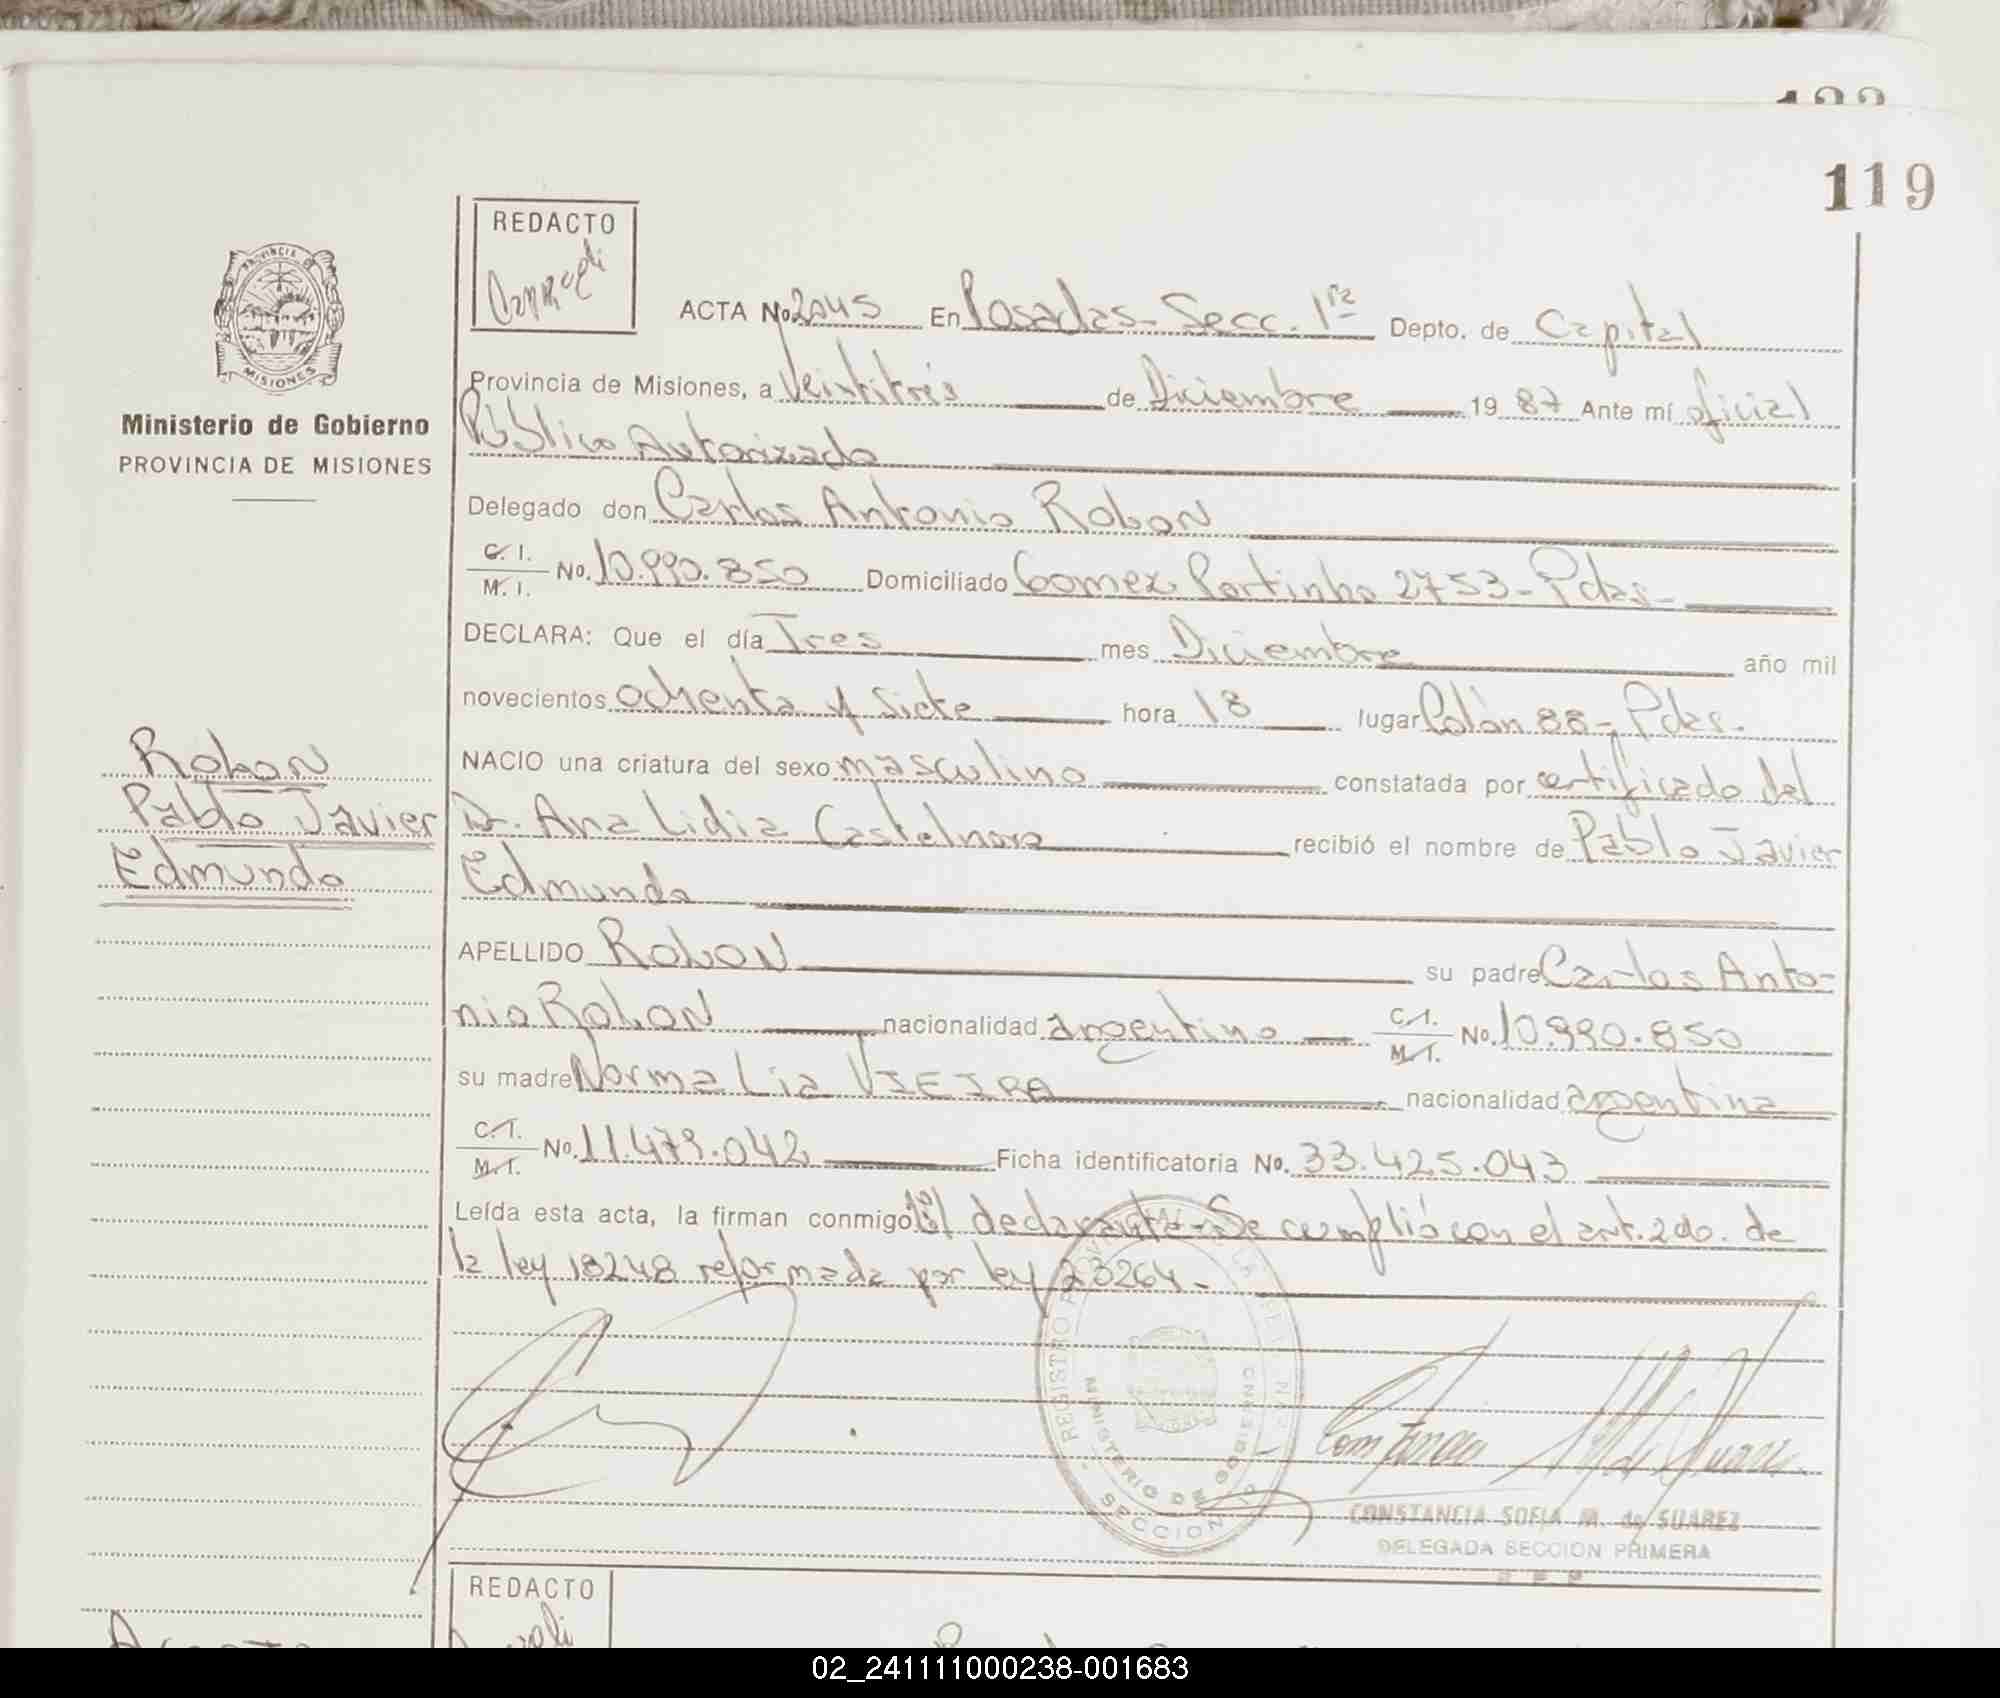 119
REDACTO
PROVINCIA DE
MISIONES
Ministerio de Gobierno
PROVINCIA DE MISIONES
ACTA No. 2045 En Posadas - Secc. 1ra Depto. de Capital
Provincia de Misiones, a Veintitrés de Diciembre 19 87 Ante mí oficial
Público Autorizado
Delegado don Carlos Antonio Robon
C. I.
M. I. No. 10.990.850 Domiciliado Gomez Portinho 2753 - Pdas -
DECLARA: Que el día Tres mes Diciembre año mil
novecientos ochenta y siete hora 18 lugar Colón 88 - Pdas.
NACIO una criatura del sexo masculino constatada por certificado del
Dr. Ana Lidia Castelnovo recibió el nombre de Pablo Javier
Edmundo
Robon
Pablo Javier
Edmundo
APELLIDO Robon su padre Carlos Anto-
nio Robon nacionalidad argentino C. I.
M. I. No. 10.990.850
su madre Norma Lia VIEIRA nacionalidad argentina
C. I.
M. I. No. 11.479.042 Ficha identificatoria No. 33.425.043
Leída esta acta, la firman conmigo el declarante - Se cumplió con el art. 2do. de
la ley 18248 reformada por ley 23264 -
MINISTERIO DE GOBIERNO
SECCION 1a
CONSTANCIA SOFIA M. de SUAREZ
DELEGADA SECCION PRIMERA
REDACTO
02_241111000238-001683